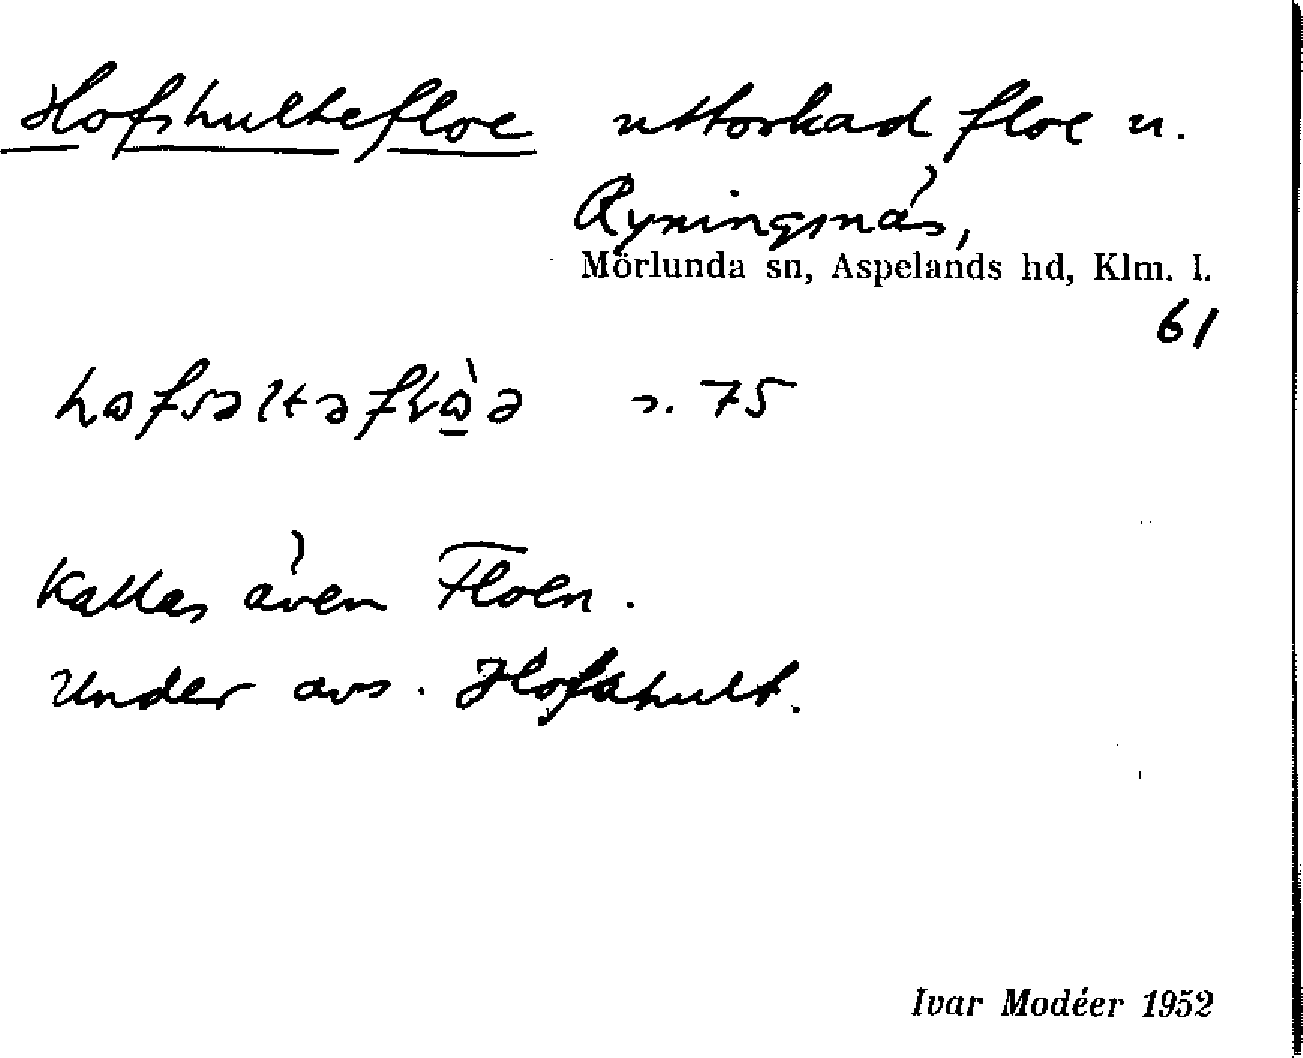 Hofshultefloe uttorkad floe u.
Ryningsnäs,
Mörlunda sn, Aspelands hd, Klm. l.
61
s. 75
Kallas även Floen.
Under avs. Hofshult.
Ivar Modéer 1952